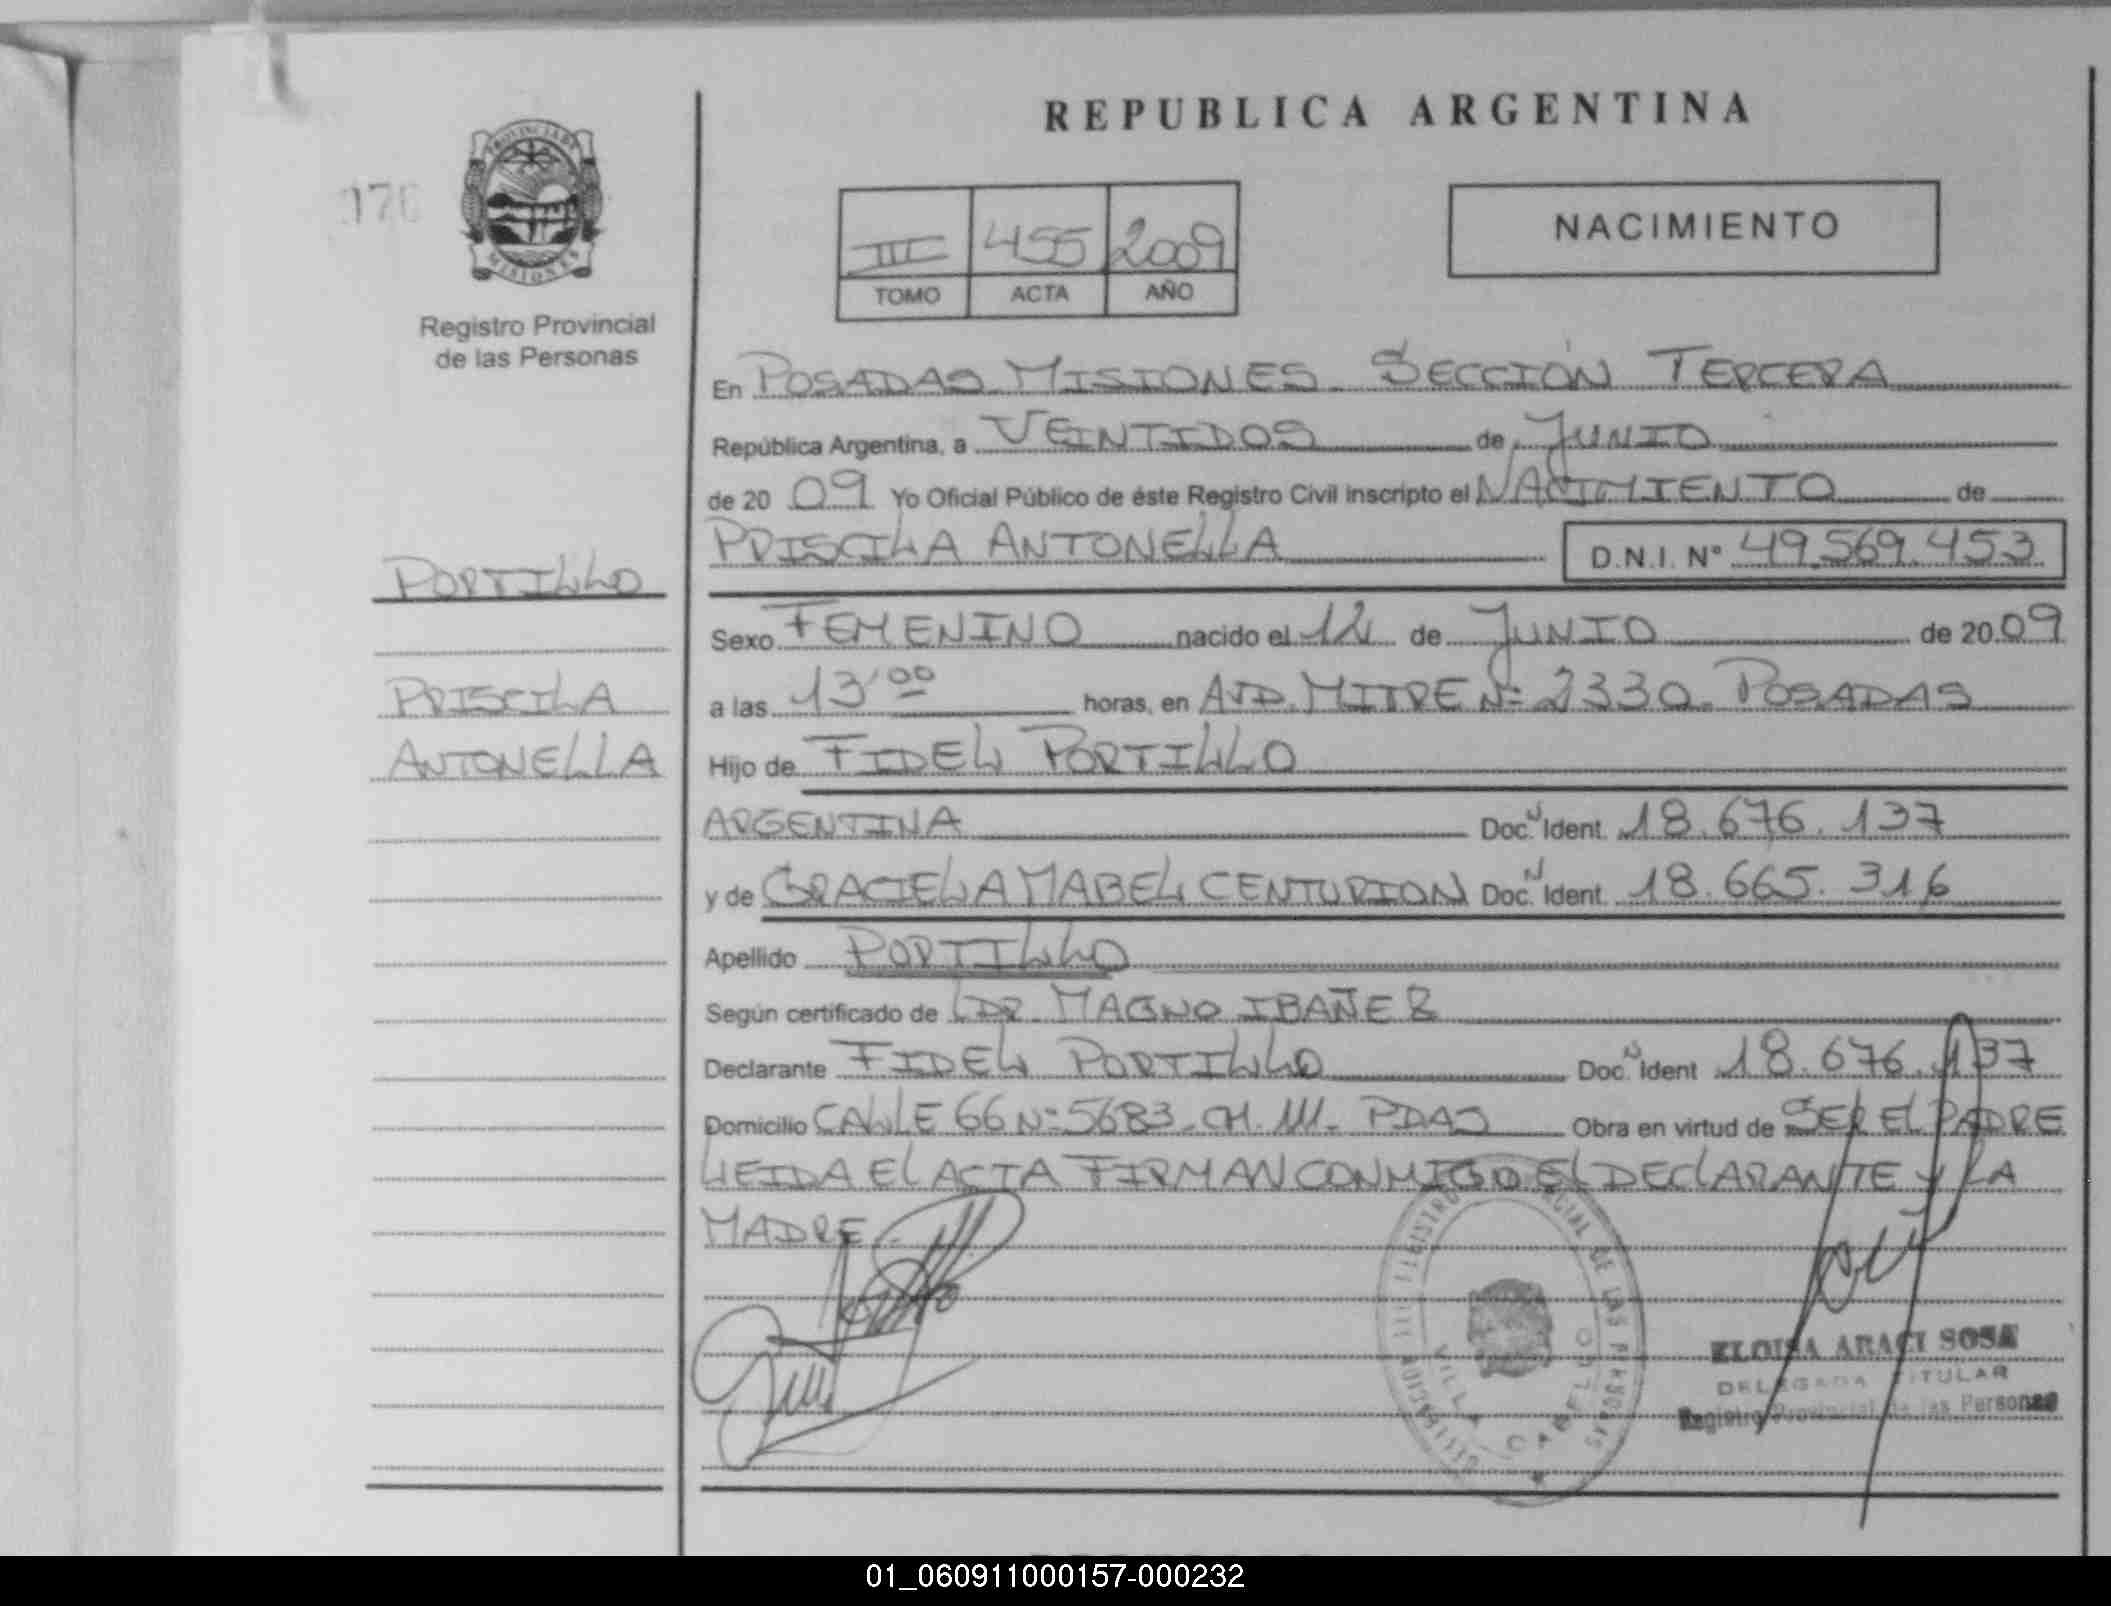 REPUBLICA ARGENTINA
PROVINCIA DE
MISIONES
Registro Provincial
de las Personas
III 455 2009
TOMO ACTA AÑO
NACIMIENTO
En POSADAS MISIONES. SECCIÓN TERCERA
República Argentina, a VEINTIDOS de JUNIO
de 20 09 Yo Oficial Público de éste Registro Civil inscripto el NACIMIENTO de
PRISCILA ANTONELLA D.N.I. Nº 49.569.453
PORTILLO
Sexo FEMENINO nacido el 12 de JUNIO de 20 09
PRISCILA
a las 13'00 horas, en AVD. MITRE Nº 2330. POSADAS
ANTONELLA
Hijo de FIDEL PORTILLO
ARGENTINA Doc. Ident. 18.676.137
y de GRACIELA MABEL CENTURION Doc. Ident. 18.665.316
Apellido PORTILLO
Según certificado de DR. MAGNO IBAÑEZ
Declarante FIDEL PORTILLO Doc. Ident 18.676.137
Domicilio CALLE 66 Nº 5683. CH. 111. PDAS Obra en virtud de SER EL PADRE
LEIDA EL ACTA FIRMAN CONMIGO EL DECLARANTE Y LA
MADRE.
REGISTRO PROVINCIAL DE LAS PERSONAS
VILLA CABELLO
ELOISA ARACI SOSA
DELEGADA TITULAR
Registro Provincial de las Personas
01_060911000157-000232